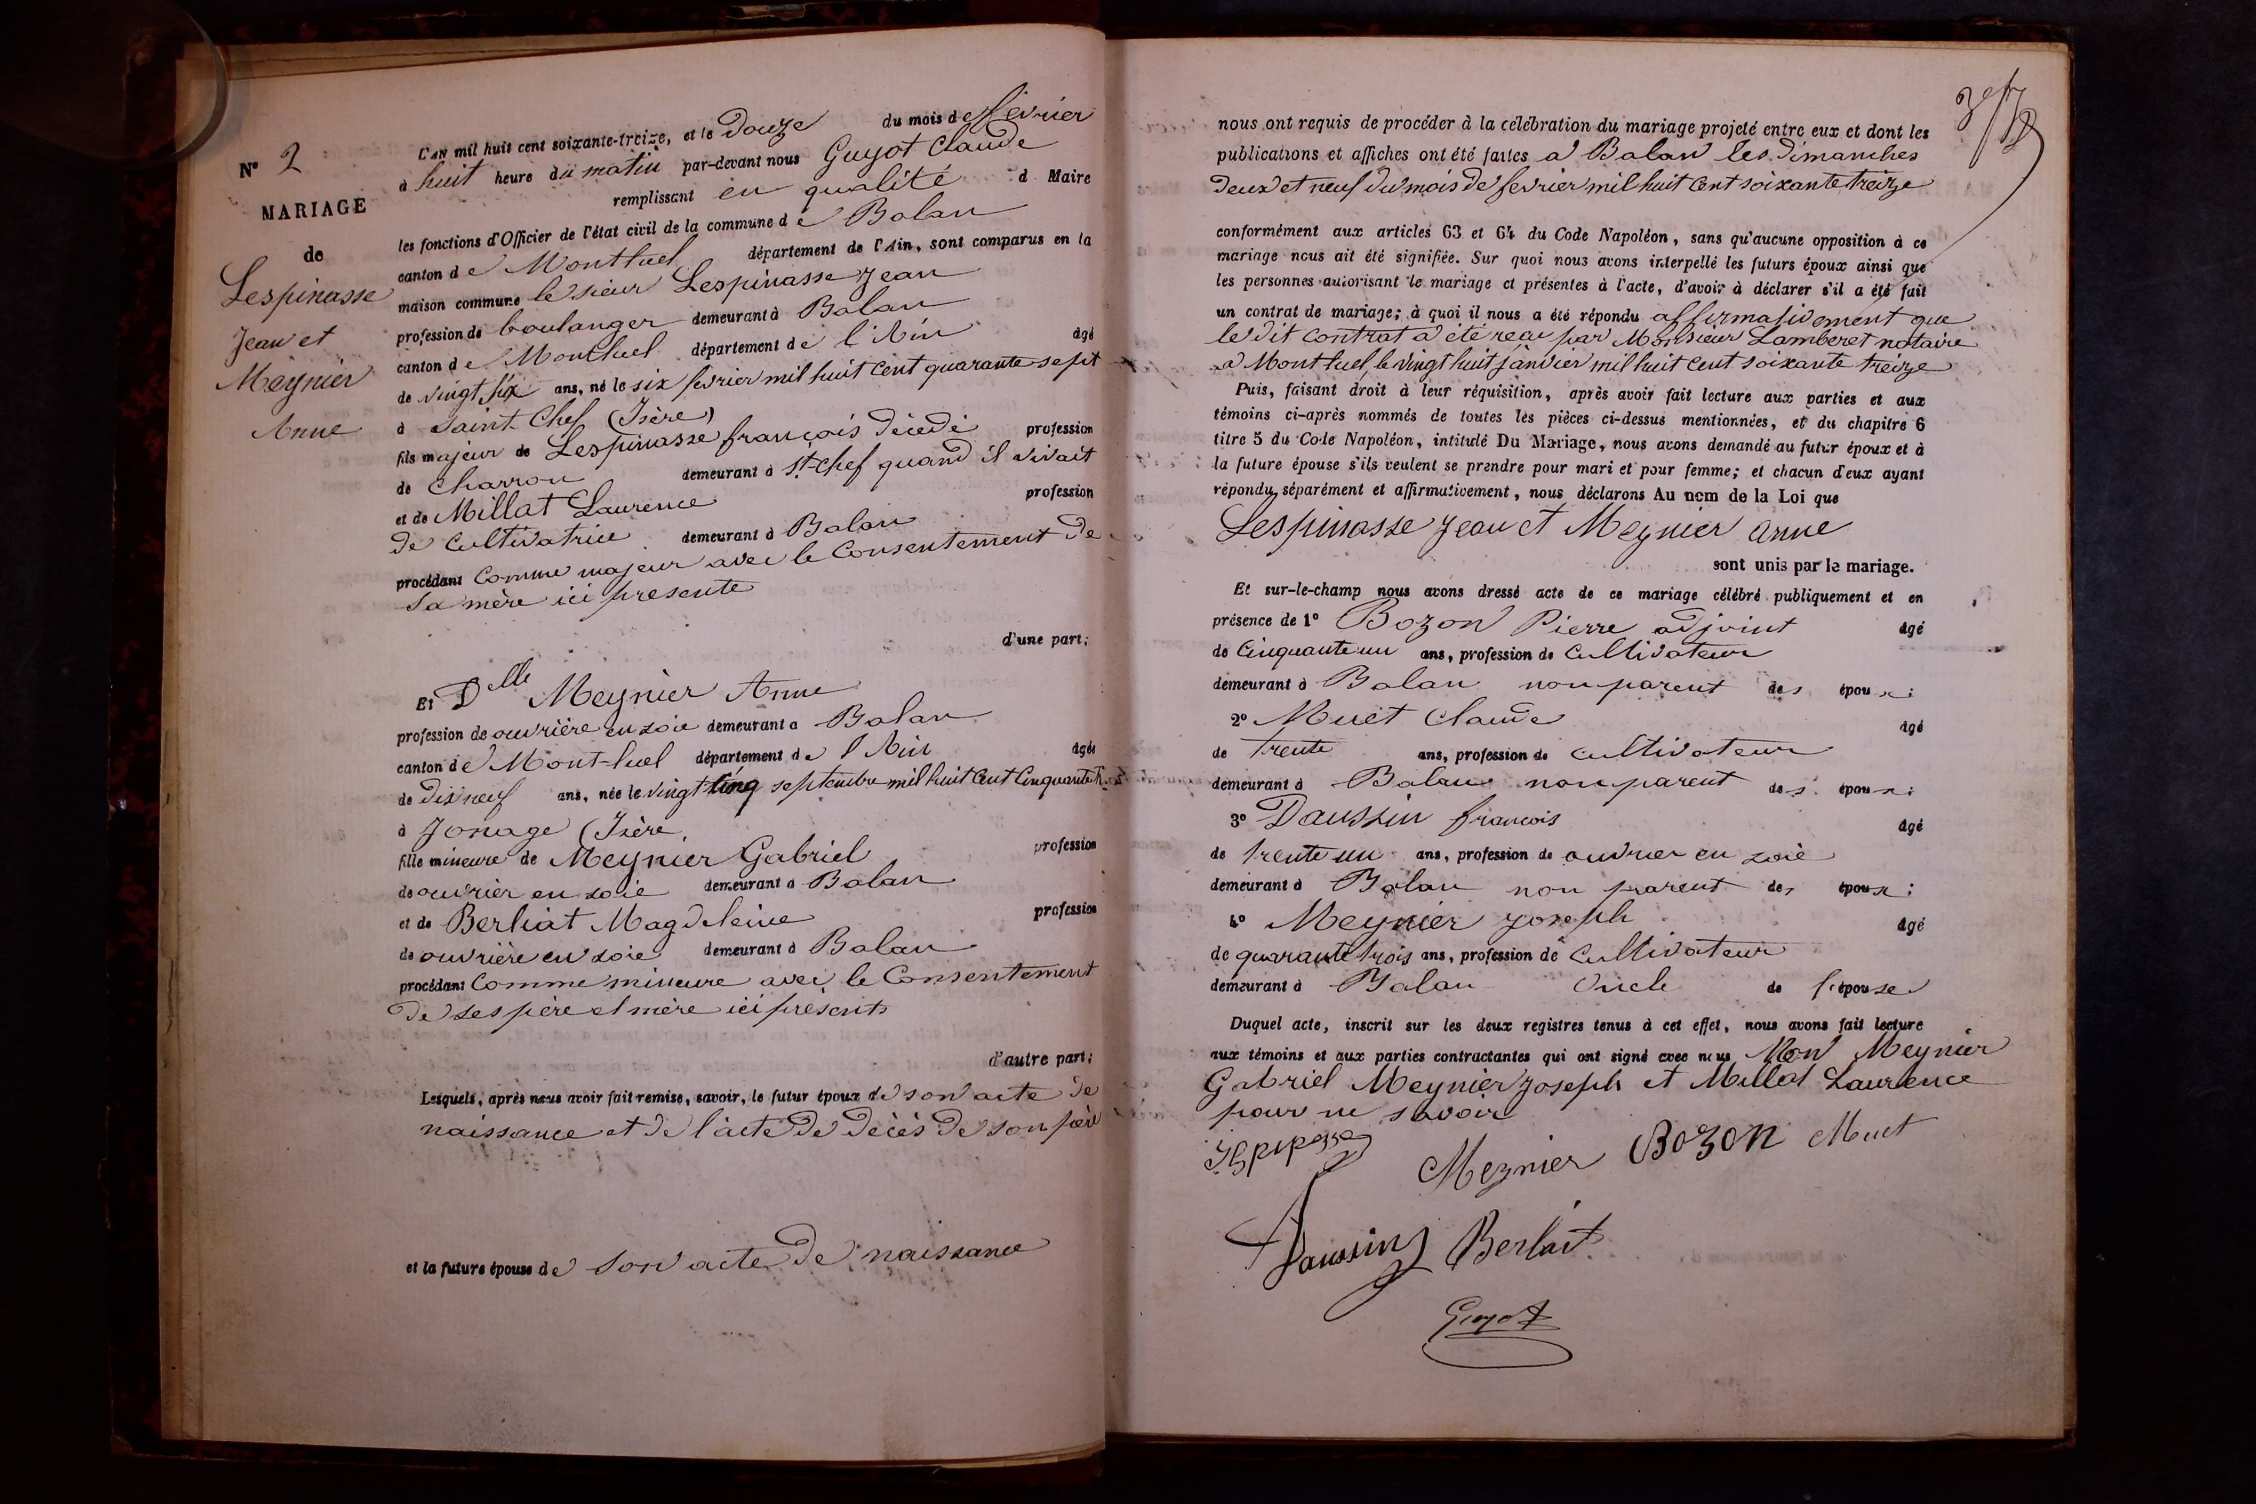 N° 2
MARIAGE
de
Lespinasse
Jean et
Meynier
Anne
L'AN mil huit cent soixante-treize, et le Douze du mois de fevrier
à huit heure du matin par-devant nous Guyot Claude
remplissant en qualité d Maire
les fonctions d'Officier de l'état civil de la commune de Balan
canton de Montluel département de l'Ain, sont comparus en la
maison commune le sieur Lespinasse Jean
profession de boulanger demeurant à Balan
canton de Montluel département de l'Ain âgé
de vingt six ans, né le six fevrier mil huit cent quarante sept
à Saint Chef (Isère)
fils majeur de Lespinasse françois décédé profession
de charron demeurant à St chef quand il vivait
et de Millat Laurence profession
de cultivatrice demeurant à Balan
procédant comme majeur avec le consentement de
sa mère ici presente
d'une part;
Et Delle Meynier Anne
profession de ouvrière en soie demeurant à Balan
canton de Montluel département de l'Ain âgée
de dix neuf ans, née le vingt cinq septembre mil huit cent cinquante
à Jonage (Isère,
fille mineure de Meynier Gabriel profession
de ouvrier en soie demeurant à Balan
et de Berliat Magdeleine profession
de ouvrière en soie demeurant à Balan
procédant comme mineure avec le consentement
de ses père et mère ici présents
d'autre part;
Lesquels, après nous avoir fait remise, savoir, le futur époux de son acte de
naissance et de l'acte de décès de son père
et la future épouse de son acte de naissance
nous ont requis de procéder à la célébration du mariage projeté entre eux et dont les
publications et affiches ont été faites à Balan les dimanches
deux et neuf du mois de fevrier mil huit cent soixante treize
conformément aux articles 63 et 64 du Code Napoléon, sans qu'aucune opposition à ce
mariage nous ait été signifiée. Sur quoi nous avons interpellé les futurs époux ainsi que
les personnes autorisant le mariage et présentes à l'acte, d'avoir à déclarer s'il a été fait
un contrat de mariage; à quoi il nous a été répondu affirmativement que
le dit contrat a été reçu par Monsieur Lamberet notaire
à Montluel le vingt huit janvier mil huit cent soixante treize
Puis, faisant droit à leur réquisition, après avoir fait lecture aux parties et aux
témoins ci-après nommés de toutes les pièces ci-dessus mentionnées, et du chapitre 6
titre 5 du Code Napoléon, intitulé Du Mariage, nous avons demandé au futur époux et à
la future épouse s'ils veulent se prendre pour mari et pour femme; et chacun d'eux ayant
répondu séparément et affirmativement, nous déclarons Au nom de la Loi que
Lespinasse Jean et Meynier anne
sont unis par le mariage.
Et sur-le-champ nous avons dressé acte de ce mariage célébré publiquement et en
présence de 1° Bozon Pierre adjoint âgé
de cinquante un ans, profession de cultivateur
demeurant à Balan non parent des époux;
2° Muet Claude âgé
de trente ans, profession de cultivateur
demeurant à Balan non parent des époux;
3° Daussin francois âgé
de trente un ans, profession de ouvrier en soie
demeurant à Balan non parent des époux;
4° Meynier joseph âgé
de quarante trois ans, profession de cultivateur
demeurant à Balan Oncle de l'épouse
Duquel acte, inscrit sur les deux registres tenus à cet effet, nous avons fait lecture
aux témoins et aux parties contractantes qui ont signé avec nous Non Meynier
Gabriel Meynier Joseph et Millat Laurence
pour ne savoir
Meynier Bozon Muet
Daussin Berliat
Guyot